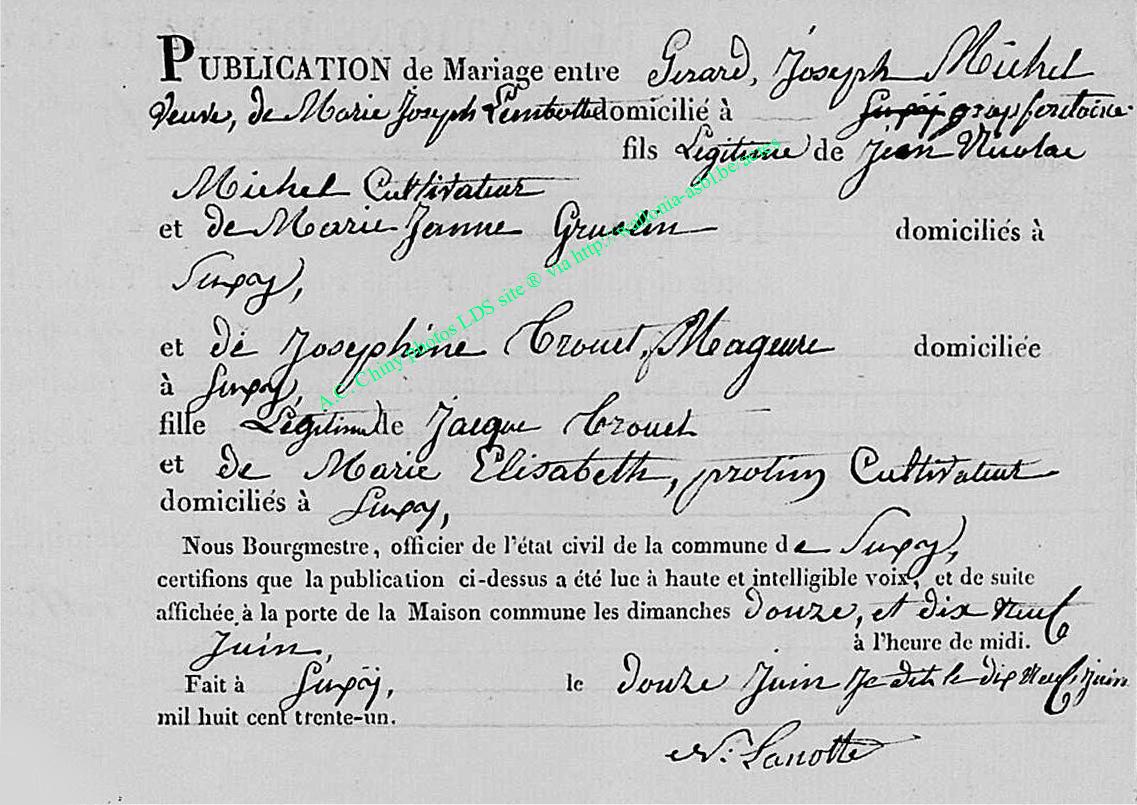 PUBLICATION de Mariage entre Gerard, Joseph Michel
veuve, de Marie Joseph Lembotte domicilié à
fils Légitime de Jean Nicolae
Michel Cultivateur
et de Marie Jeanne domiciliés à
Suxÿ,
et de Josephine Crouet, Mageure domiciliée
à Suxÿ,
fille Légitime de Jacque Crouet
et de Marie Elisabeth, protin Cultivateur
domiciliés à Suxÿ,
Nous Bourgmestre, officier de l'état civil de la commune de Suxÿ,
certifions que la publication ci-dessus a été lue à haute et intelligible voix, et de suite
affichée à la porte de la Maison commune les dimanches douze, et dix neuf
Juin, à l'heure de midi.
Fait à Suxÿ, le douze Juin le dix neuf, juin
mil huit cent trente-un.
N. Lanotte
A.C. Chiny photos LDS site ® via http://wallonia-asbl.be/actes